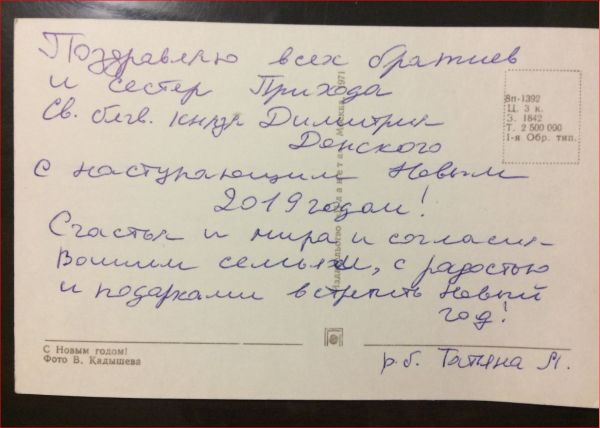 Поздравляю всех братиев
и сестер Прихода
Св. блгв. князя Димитрия
Донского
с наступающим Новым
2019 годом!
Счастья и мира и согласия
Вашим семьям, с радостью
и подарками встретить Новый
год!
р.б. Татьяна М.
С Новым годом!
Фото В. Кадышева
Издательство „Планета“ Москва 1971
8п-1392
Ц. 3 к.
З. 1842
Т. 2 500 000
1-я Обр. тип.